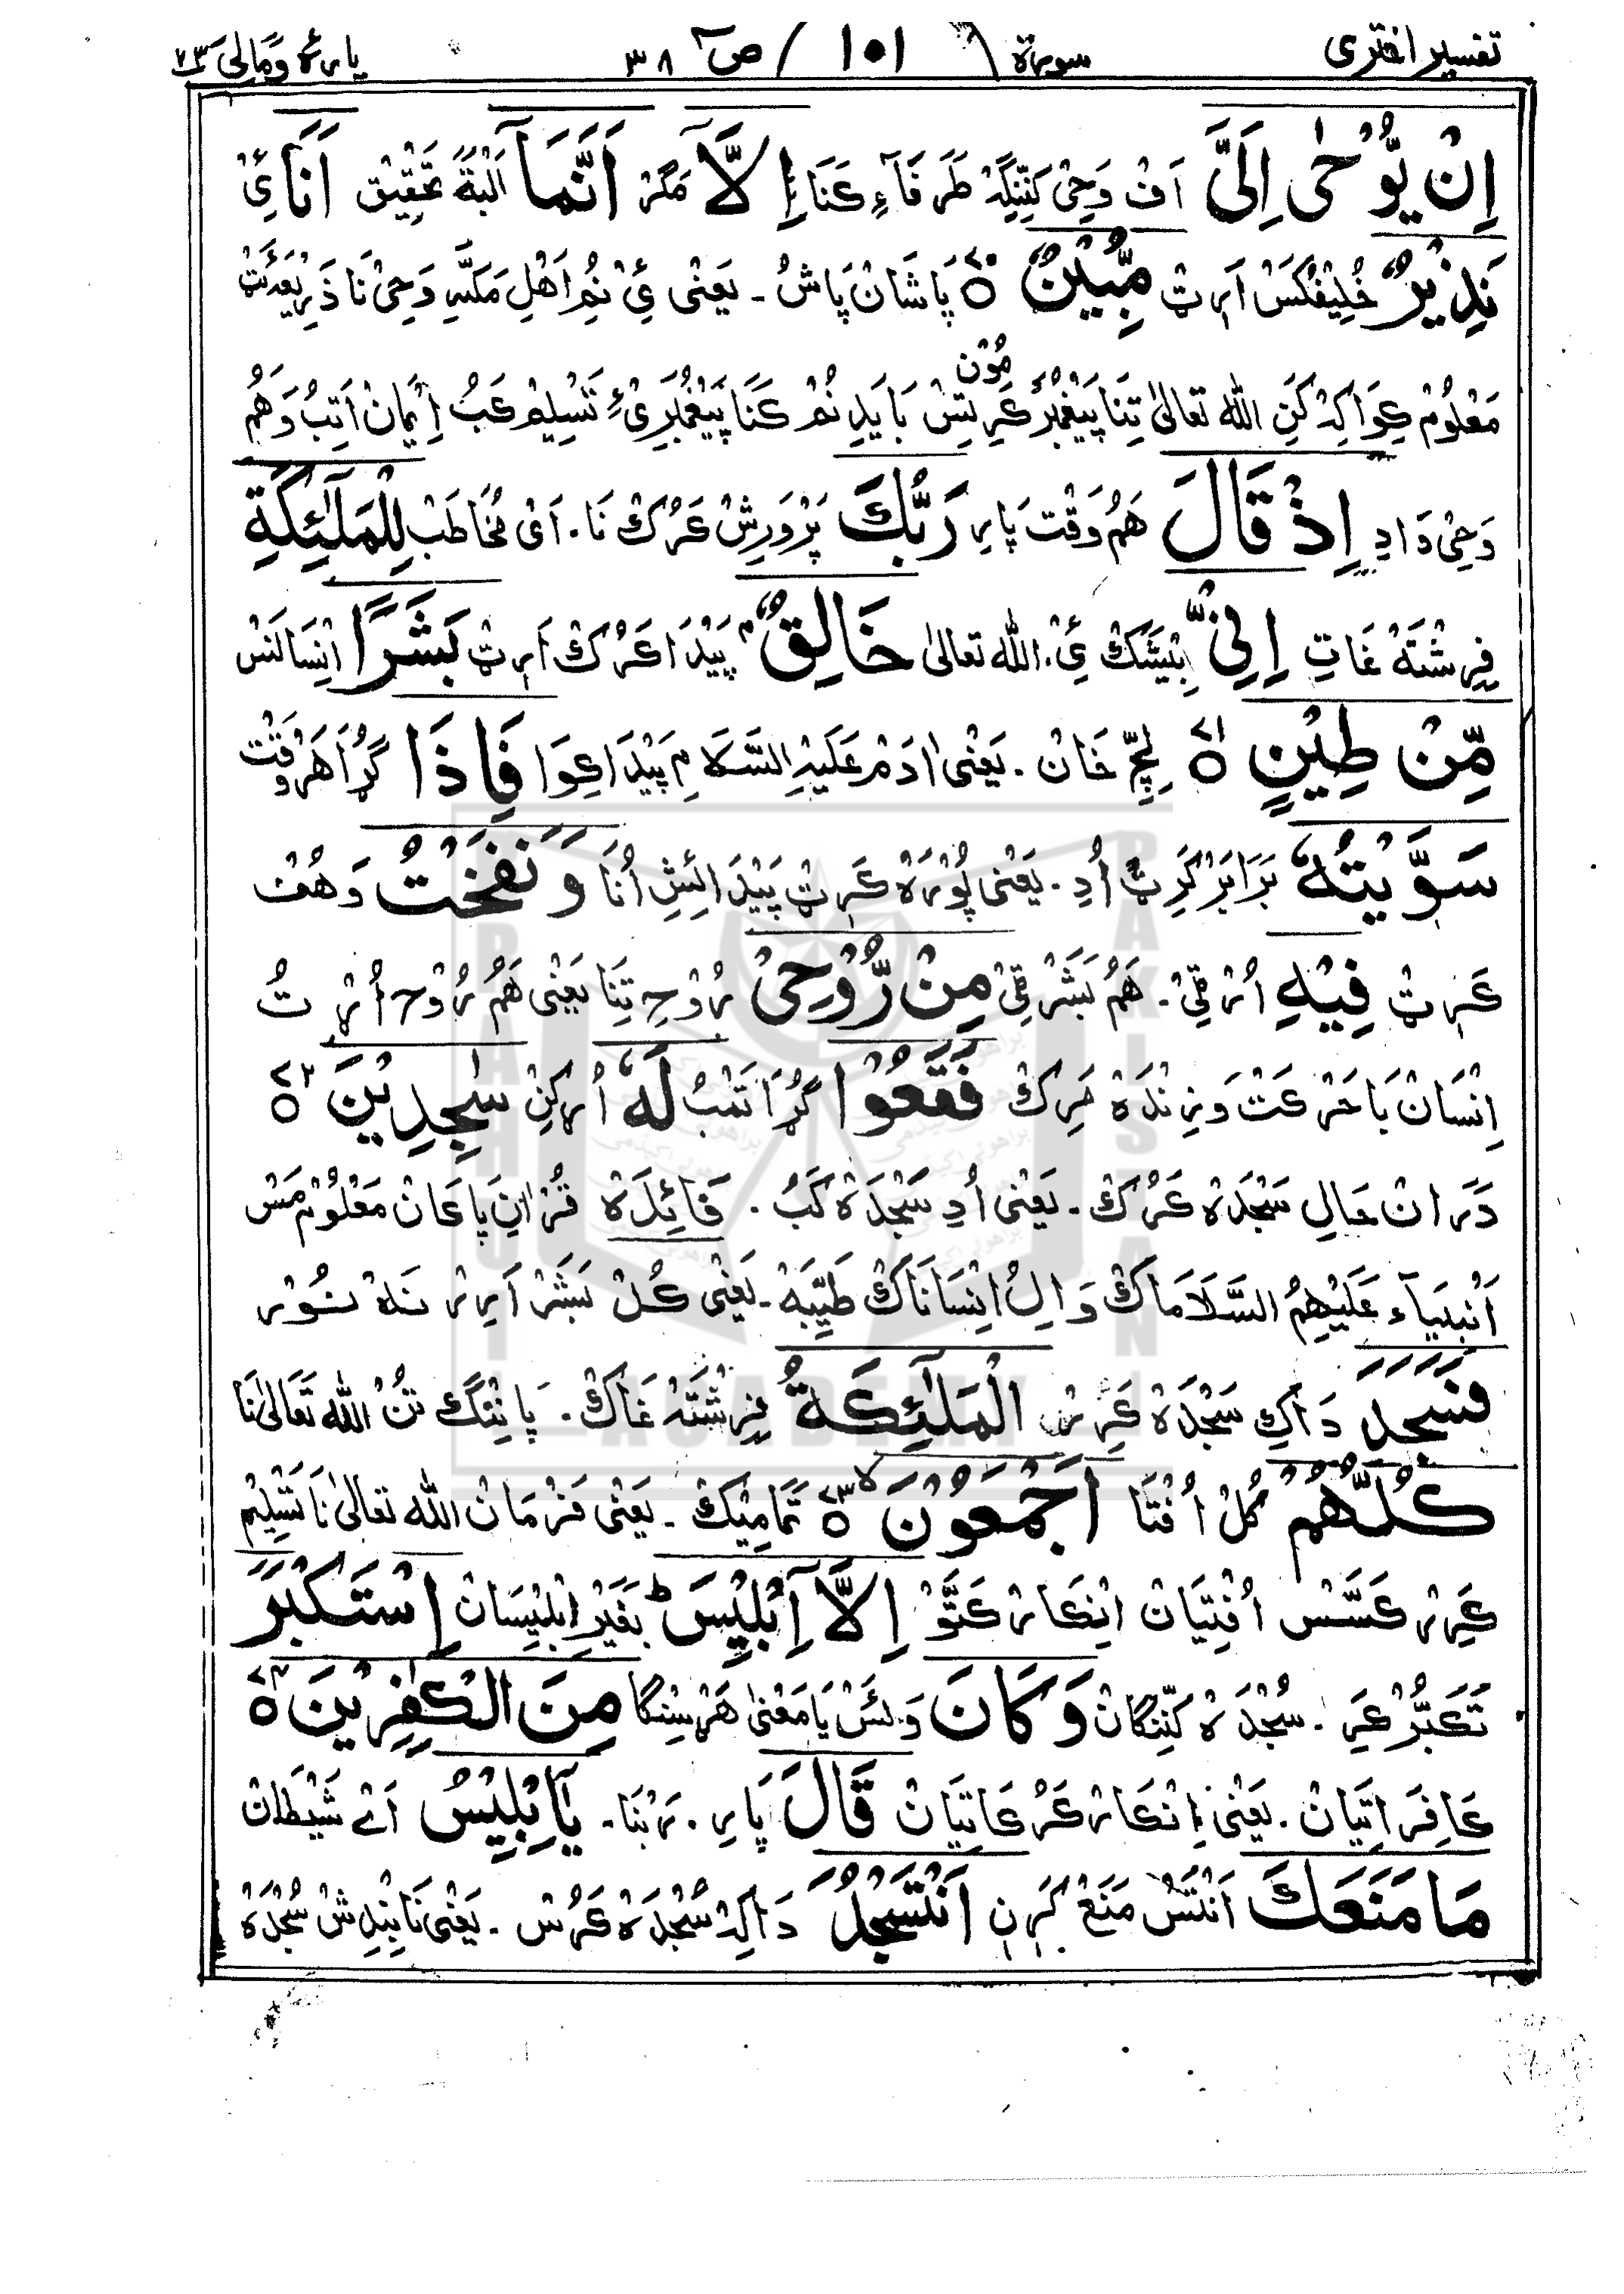 تفسیر اختری سورة ( ۱۰۱ / صٓ ۳۸ پارهٔ وَمَالِیَ ۲۳
اِنْ یُّوْحٰۤی اِلَیَّ اَف وَحِیْ کَنِّنِگہْ طَرَفَآءِ کَنَا اِلَّاۤ مَگرْ اَنَّمَاۤ اَلْبَتَّہ تَحْقِیْق اَنَا ئِیْ
نَذِیْرٌ خُلِیْفُکَسْ اَرِٹ مُّبِیْنٌ ۷۰ پَاشَانْ پَاشْ ۔ یَعْنٰی ئِیْ نُمِ اَهْلِ مَکَّہِ وَحِیْ نَا ذَرِیْعَہَٹْ
مَعْلُوْمْ کِوَا کِہْ کَنِ اللّٰه تعالیٰ تِنَا پَیْغَمْبَرْ کَرِیْتِسْ مُوْن بَایَدِ نُمْ کَنَا پَیْغَمْبَرِیْ ءِ تَسْلِیْم کَبُ اِیْمَانْ اَتِبُ وَهُمْ
وَحِیْ دَادِ اِذْ قَالَ هَمْ وَقْت پَارِ رَبُّكَ پَرْوَرِشْ کَرُكْ نَا ۔ اَیْ مُخَاطَبْ لِلْمَلٰٓئِکَةِ
فِرِشْتَہْ غَاتِ اِنِّیْ بِیْشَکْ ئِیْ ۔ اللّٰه تعالیٰ خَالِقٌۢ پَیْدَا کَرُكْ اَرِٹ بَشَرًا اِنْسَانَسْ
مِّنْ طِیْنٍ ۷۱ لِچّ خَانْ ۔ یَعْنٰی اٰدَمْ عَلَیْهِ السَّلَامِ پَیْدَا کِوَا فَاِذَا گُڑَا هَرْوَقْت
سَوَّیْتُهٗ بَرَابَرْ کَرِٹ اُدِ ۔ یَعْنٰی پُوْرَهْ کَرِٹ پَیْدَائِشِ اُنَا وَ نَفَخْتُ وَ هُفْ
کَرِٹ فِیْهِ اُرْقِیْ ۔ هَمُ بَشَرْقِیْ مِنْ رُّوْحِیْ رُوْحِ تِنَا یَعْنٰی هَمُ رُوْح اُرْ تُ
اِنْسَانْ بَا حَرْکَتْ وَ زِنْدَهْ مَرِكْ فَقَعُوْا گُڑَا تَمْبُ لَهٗ اُرْکِنْ سٰجِدِیْنَ ۷۲
دَرَانْ حَالِ سَجْدَهْ کَرُكْ ۔ یَعْنٰی اُدِ سَجْدَهْ کَبُ ۔ فَائِدَهْ قُرْاٰنِ پَاغَانْ مَعْلُوْم مَسْ
اَنْبِیَآء عَلَیْهِمُ السَّلَامَاكْ وَ اِلُ اِنْسَانَاكْ طَیِّبَہْ ۔ یَعْنٰی کُلْ بَشَرْ اَرِرْ نَہْ نُوْر
فَسَجَدَ دَاکِ سَجْدَهْ کَرِرْ الْمَلٰٓئِکَةُ فِرِشْتَہْ غَاكْ ۔ پَانِنْگَكْ تُنْ اللّٰه تَعَالیٰ نَا
کُلُّهُمْ کُلْ اُفْتَا اَجْمَعُوْنَ ۷۳ تَمَامِیْكْ ۔ یَعْنٰی فَرْمَانْ اللّٰه تعالیٰ نَا تَسْلِیْم
کَرِرْ کَسَّسْ اُفْتِیَانْ اِنْکَارْ کَتَّوْ اِلَّاۤ اِبْلِیْسَ ؕ بِغَیْرِ اِبْلِیْسَانْ اِسْتَکْبَرَ
تَکَبُّرْ کَرِ ۔ سُجْدَهْ کَنِّنْگَانْ وَ کَانَ وَ اَسْ یَا مَعْنٰی هَرْسِنْگَا مِنَ الْکٰفِرِیْنَ ۷۴
کَافِرَ اتِیَانْ ۔ یَعْنٰی اِنْکَارْ کَرُکَاتِیَانْ قَالَ پَارِ ۔ رَبْنَا ۔ یٰۤاِبْلِیْسُ اَے شَیْطَان
مَا مَنَعَكَ اَنْتَسْ مَنَعْ کَرِن اَنْ تَسْجُدَ دَاکِہْ سُجْدَهْ کَرُسْ ۔ یَعْنٰی نَا بَنْدِشْ سُجْدَهْ